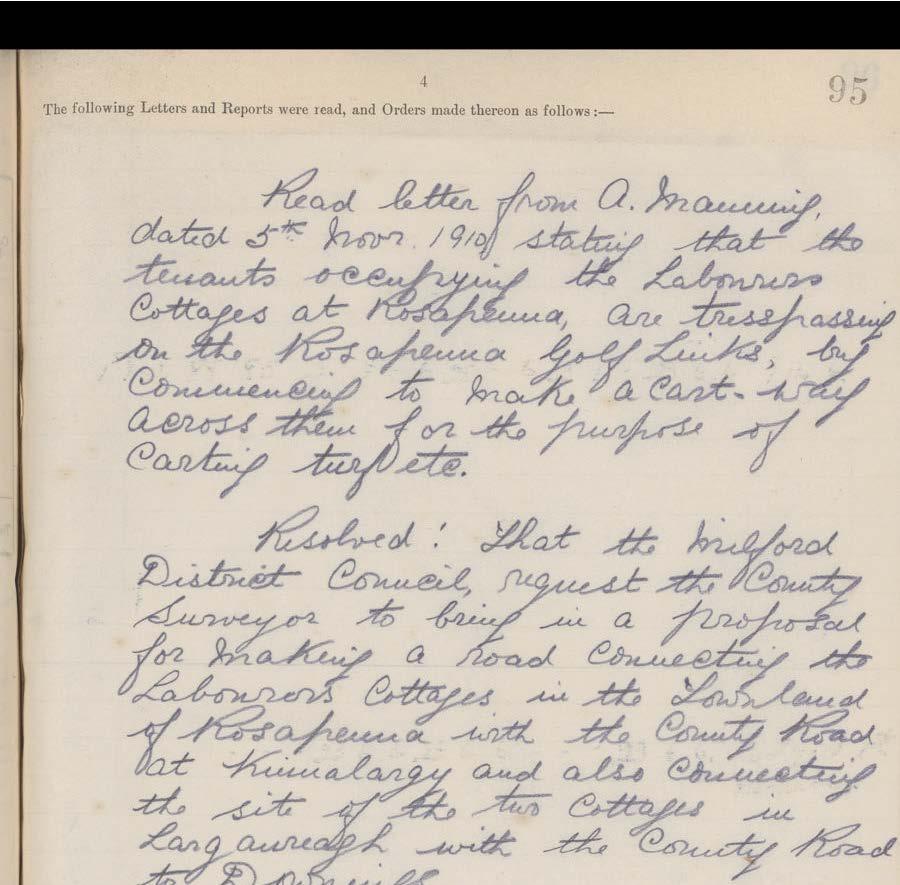 4
95
The following Letters and Reports were read, and Orders made thereon as follows:—
Read letter from A. Manning,
dated 5th Novr. 1910, stating that the
tenants occupying the Labourers
Cottages at Rosapenna, are tresspassing
on the Rosapenna Golf Links, by
Commencing to make a Cart-way
across them for the purpose of
Carting turf etc.
Resolved: That the Milford
District Council, request the County
Surveyor to bring in a proposal
for making a road connecting the
Labourers Cottages in the Townland
of Rosapenna with the County Road
at Kinnalargy and also connecting
the site of the two Cottages in
Larganreagh with the County Road
to Downings